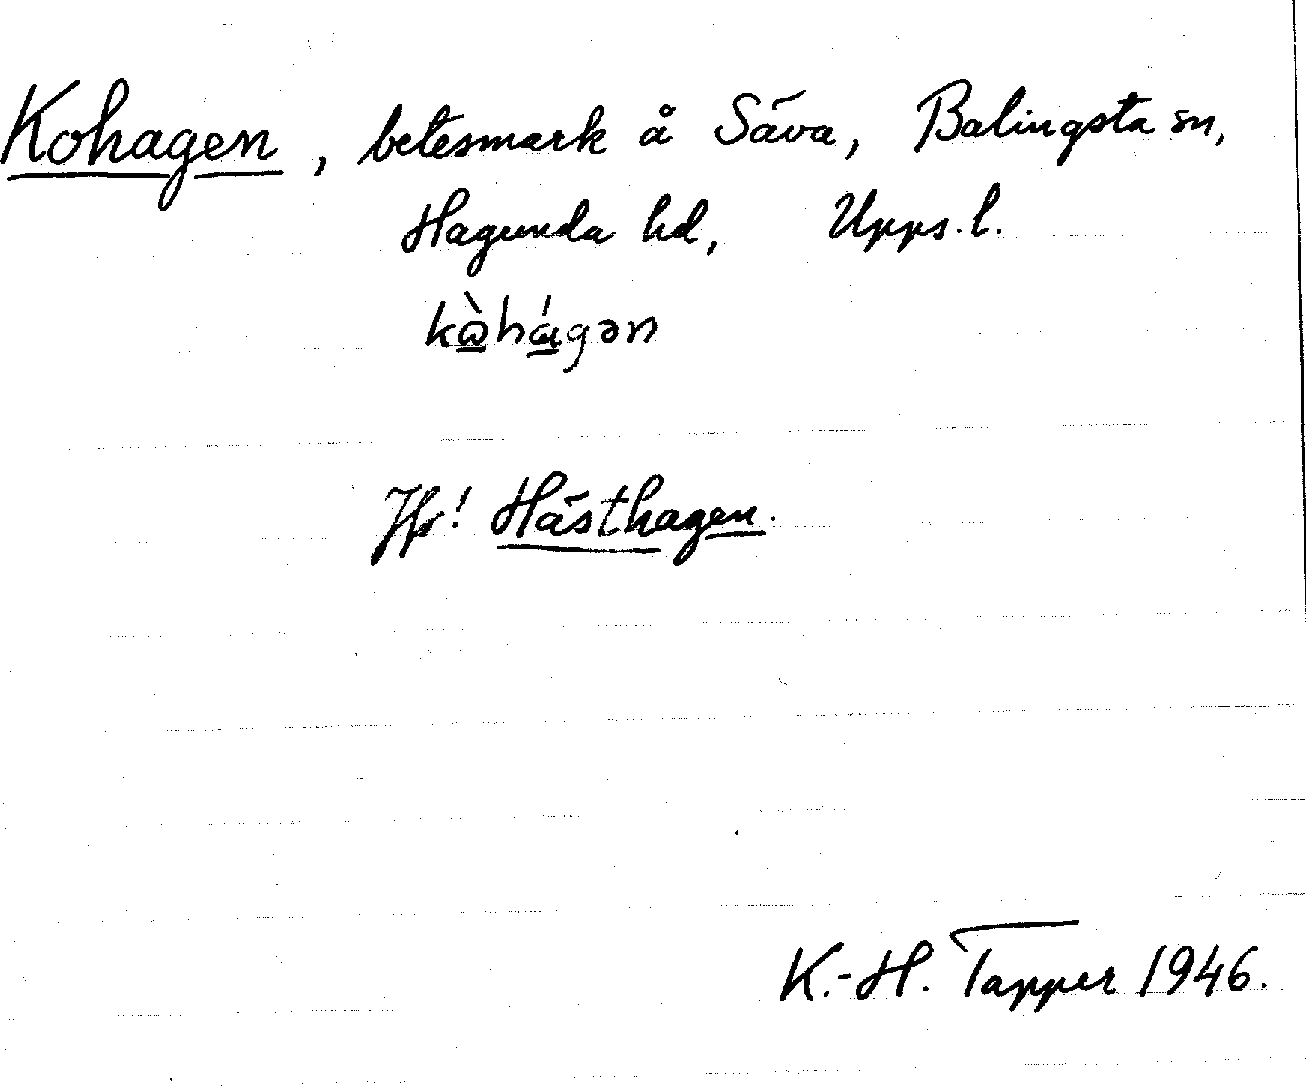 Kohagen, betesmark å Säva, Balingsta sn,
Hagunda hd, Upps. l.
kɷ̀hágən
Jfr! Hästhagen.
K.-H. Tapper 1946.